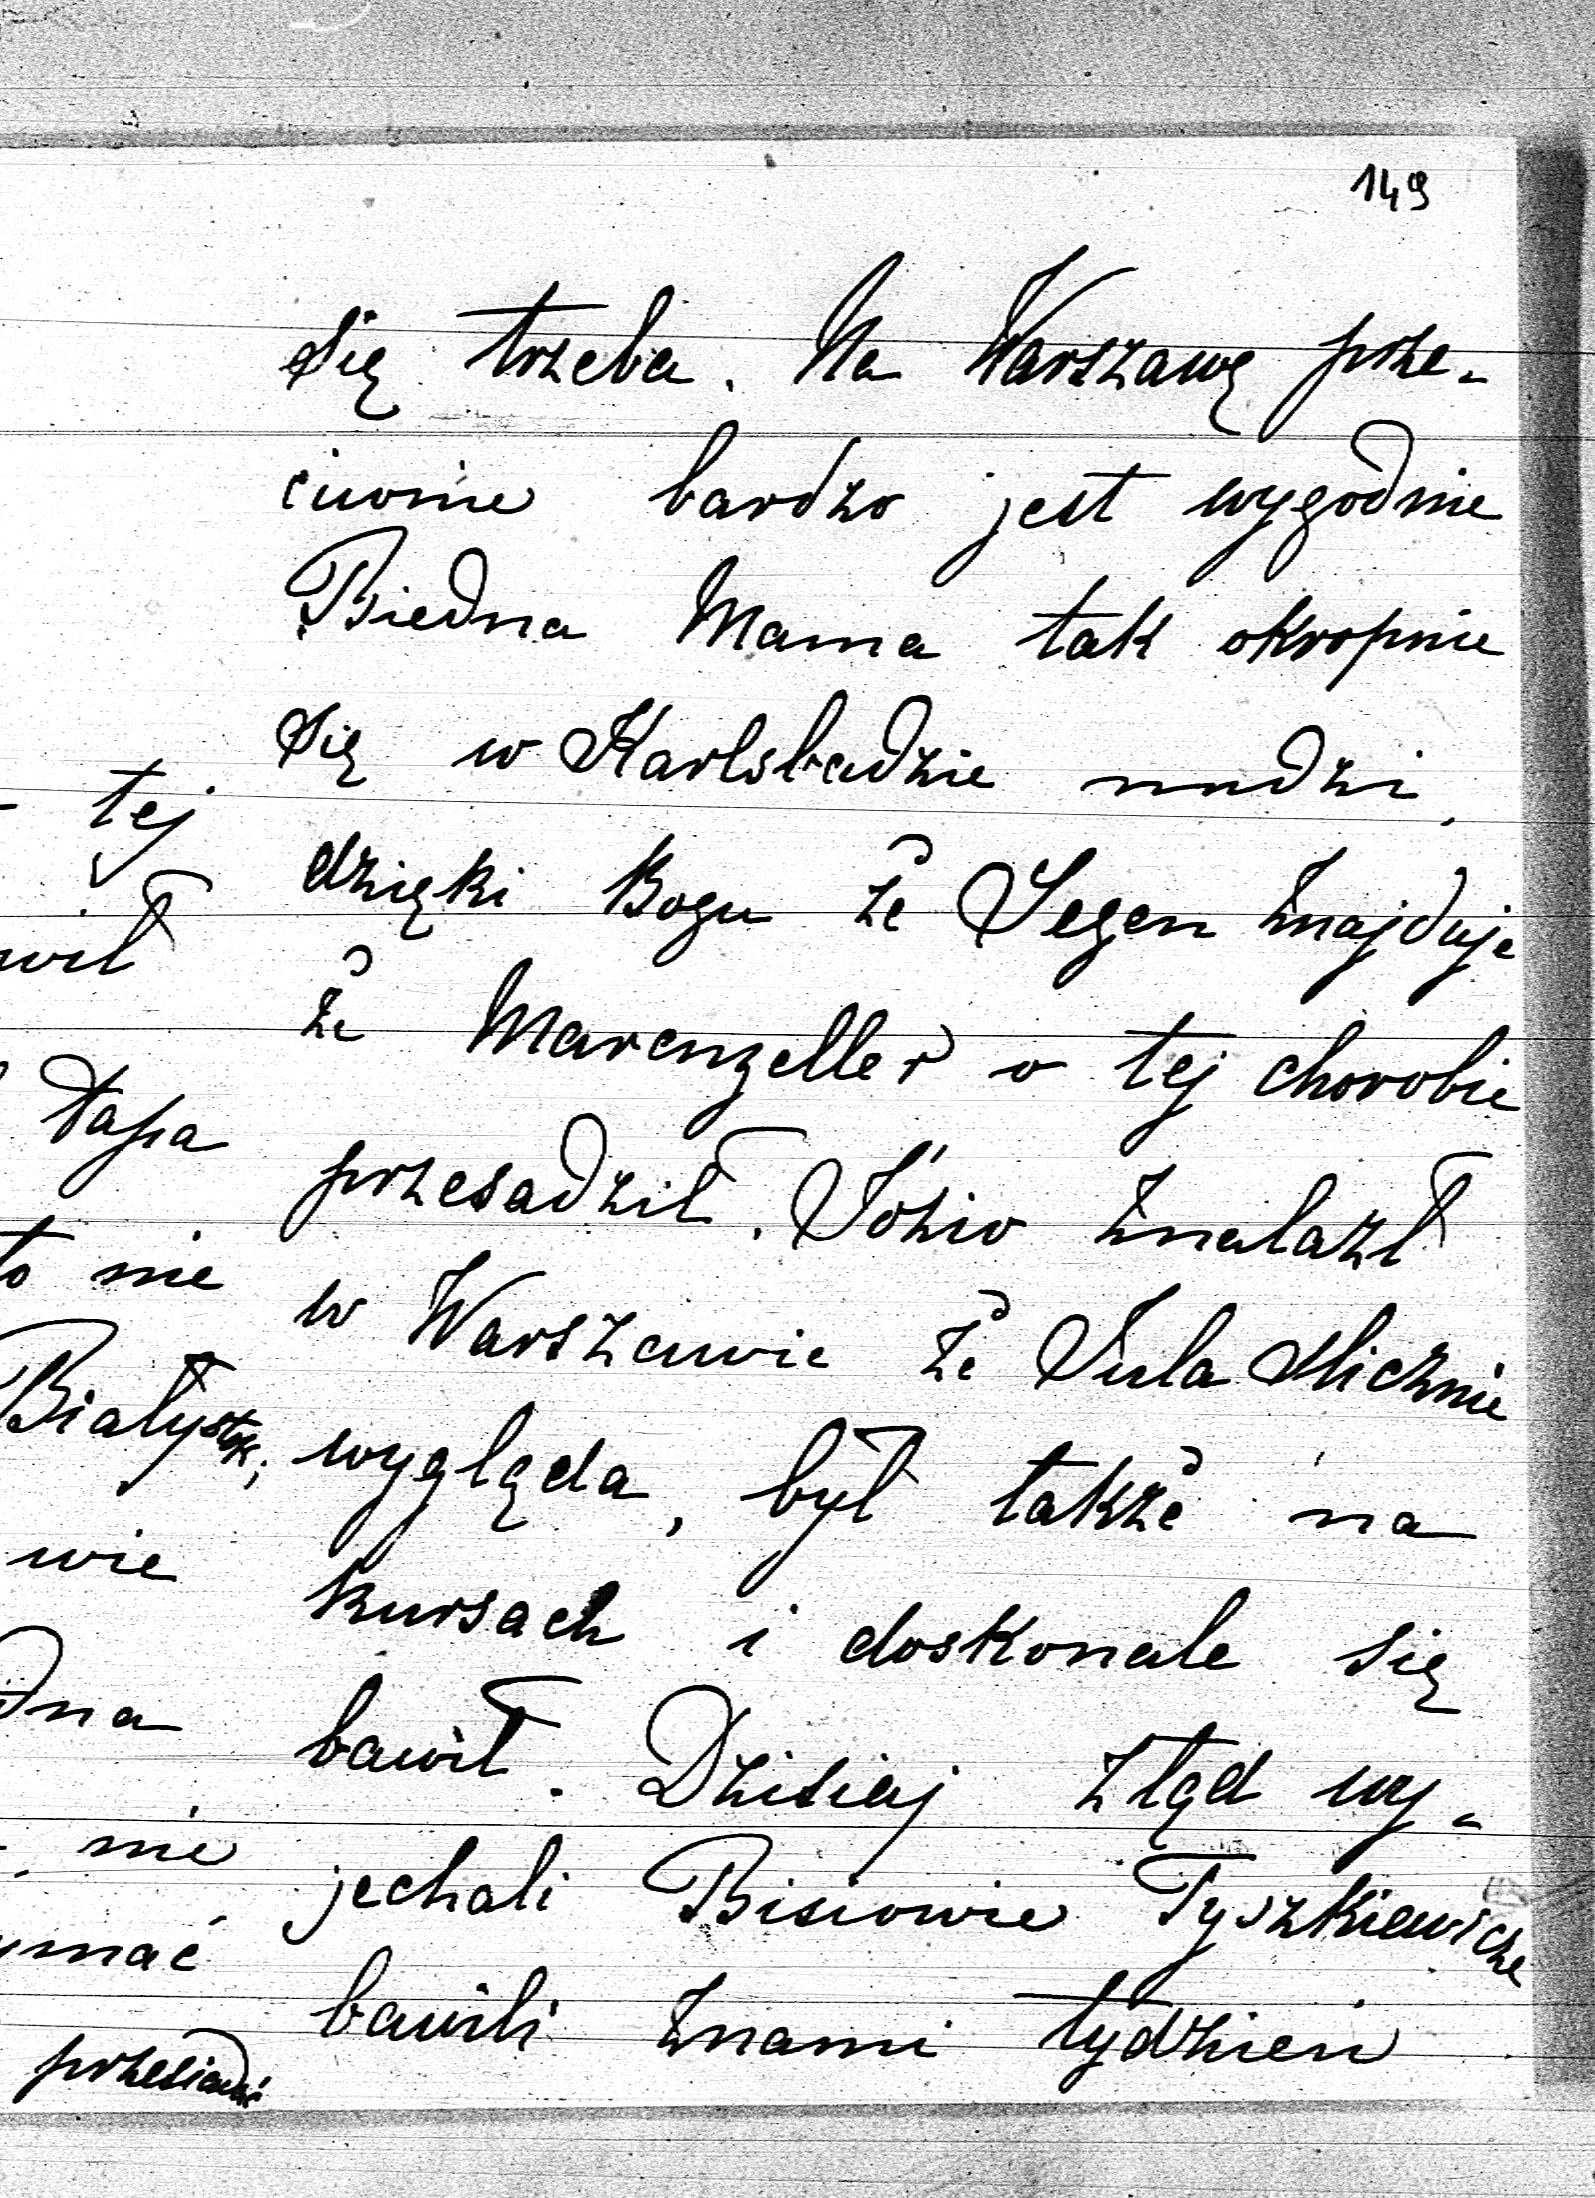 149
się trzeba. Na Warszawę prze-
ciwnie bardzo jest wygodnie
Biedna Mama tak okropnie
się w Karlsbadzie nudzi,
dzięki Bogu że Segen znajduje
że Marenzeller o tej chorobie
przesadził. Józio znalazł
w Warszawie że Jula ślicznie
wygląda, był także na
kursach i doskonale się
bawił. Dzisiaj ztąd wy-
jechali Bisiowie Tyszkiewicze
bawili znami tydzień
tej
wił
łapa
to nie
Białystok;
wie
dna
nie
ymać
przesiadać